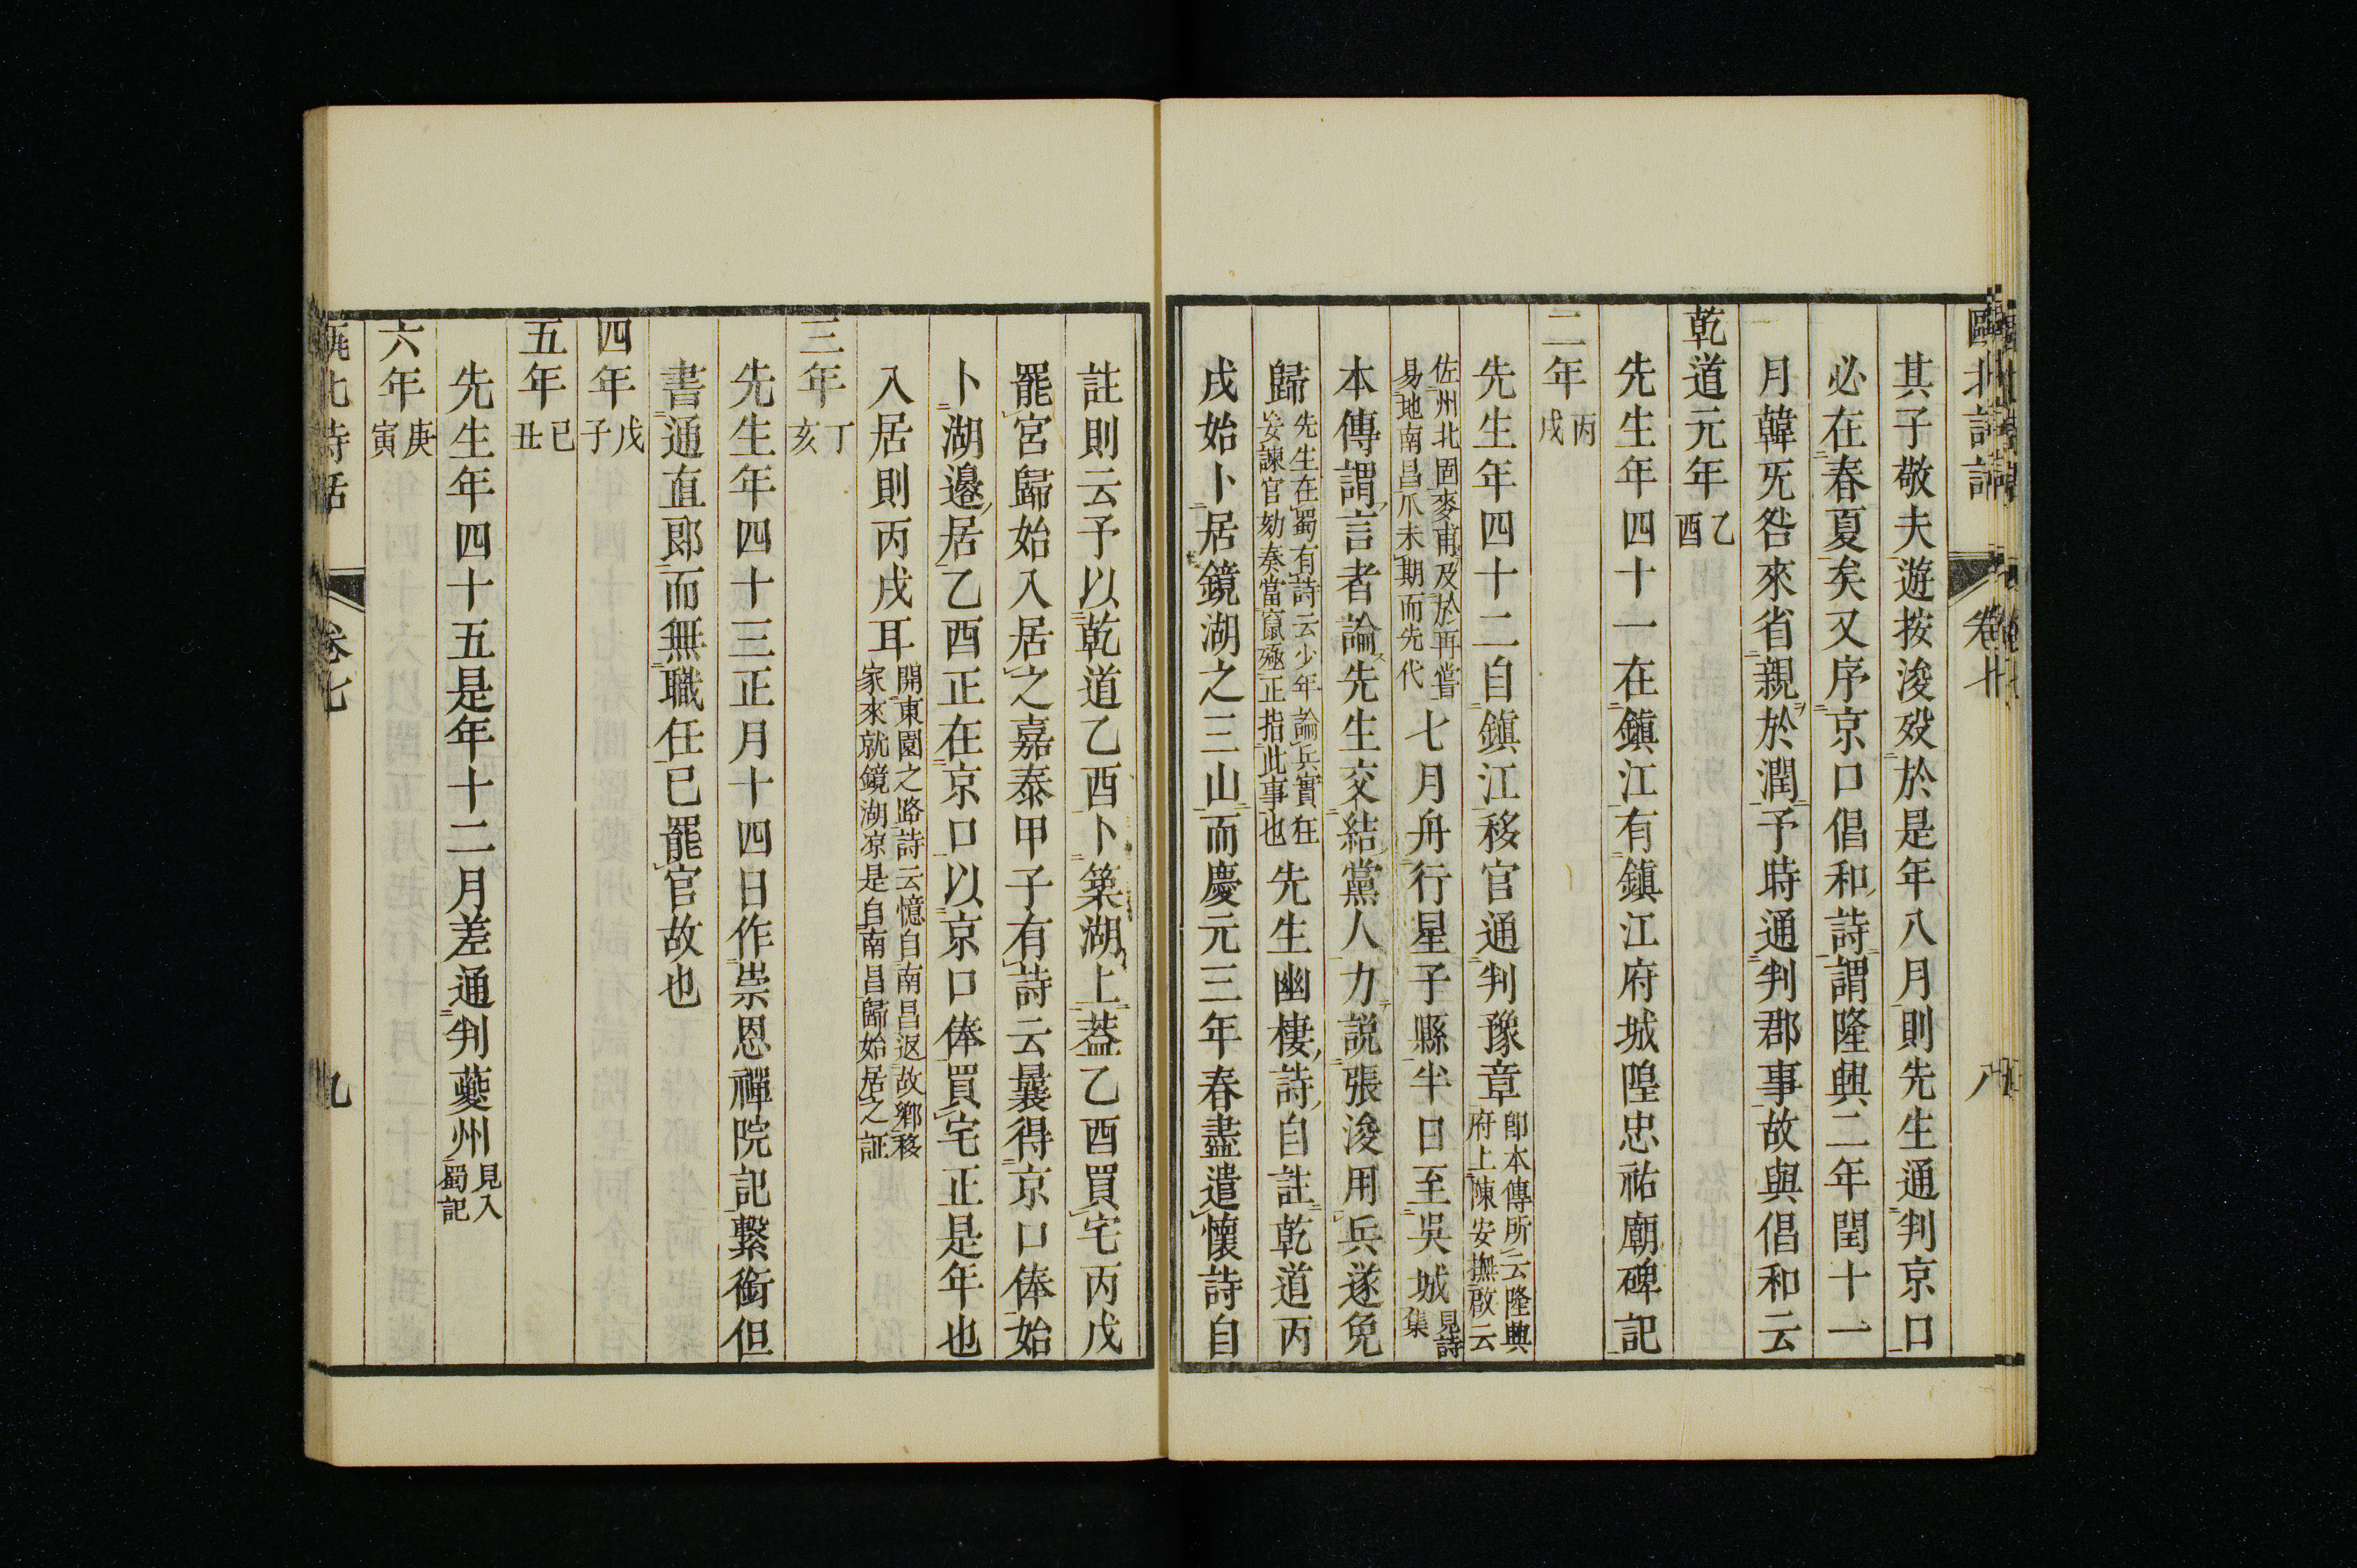 其子敬夫遊按浚歿於是年八月則先生通判京口
必在春夏矣又序京口倡和詩謂隆興二年閏十一
月韓旡咎來省親於潤予時通判郡事故與倡和云
乾道元年乙酉
先生年四十一在鎮江有鎮江府城隍忠祐廟碑記
二年丙戌
先生年四十二自鎮江移官通判豫章卽本傳所云隆興府上陳安撫啟云
佐州北固麥甫及於再嘗易地南昌爪未期而先代七月舟行星子縣半日至吳城見詩集
本傳謂言者論先生交結黨人力說張浚用兵遂免
歸先生在蜀有詩云少年論兵實狂妄諫官劾奏當竄殛正指此事也先生幽棲詩自註乾道丙
戌始卜居鏡湖之三山而慶元三年春盡遣懷詩自
註則云予以乾道乙酉卜築湖上葢乙酉買宅丙戌
罷官歸始入居之嘉泰甲子有詩云曩得京口俸始
卜湖邊居乙酉正在京口以京口俸買宅正是年也
入居則丙戌耳開東園之路詩云憶自南昌返故鄉移家來就鏡湖凉是自南昌歸始居之証
三年丁亥
先生年四十三正月十四日作崇恩禪院記繫銜但
書通直郎而無職任已罷官故也
四年戊子
五年已丑
先生年四十五是年十二月差通判夔州見入蜀記
六年庚寅
甌北詩話
卷七
九